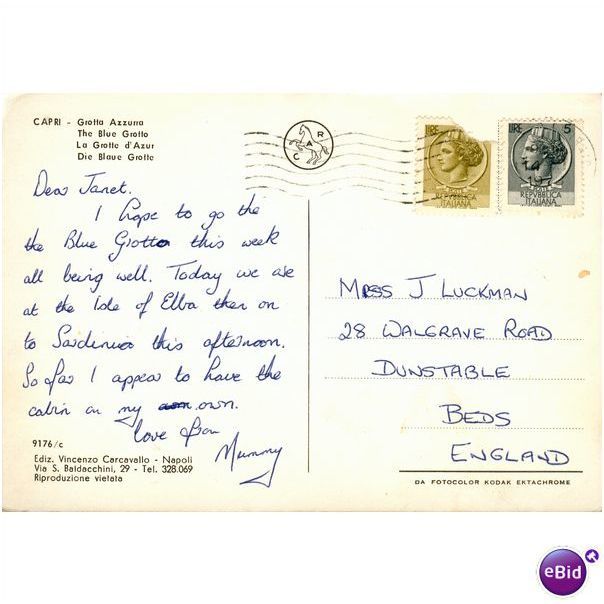 CAPRI - Grotta Azzurra
The Blue Grotto
La Grotte d'Azur
Die Blaue Grotte
R
A
C
LIRE
REPVBBLICA
ITALIANA
LIRE 5
REPVBBLICA
ITALIANA
Dear Janet.
I hope to go the
the Blue Grotto this week
all being well. Today we are
at the Isle of Elba then on
to Sardinia this afternoon.
So far I appear to have the
cabin on my own.
love from
Mummy
Miss J LUCKMAN
28 WALGRAVE ROAD
DUNSTABLE
BEDS
ENGLAND
9176/c
Ediz. Vincenzo Carcavallo - Napoli
Via S. Baldacchini, 29 - Tel. 328.069
Riproduzione vietata
DA FOTOCOLOR KODAK EKTACHROME
eBid